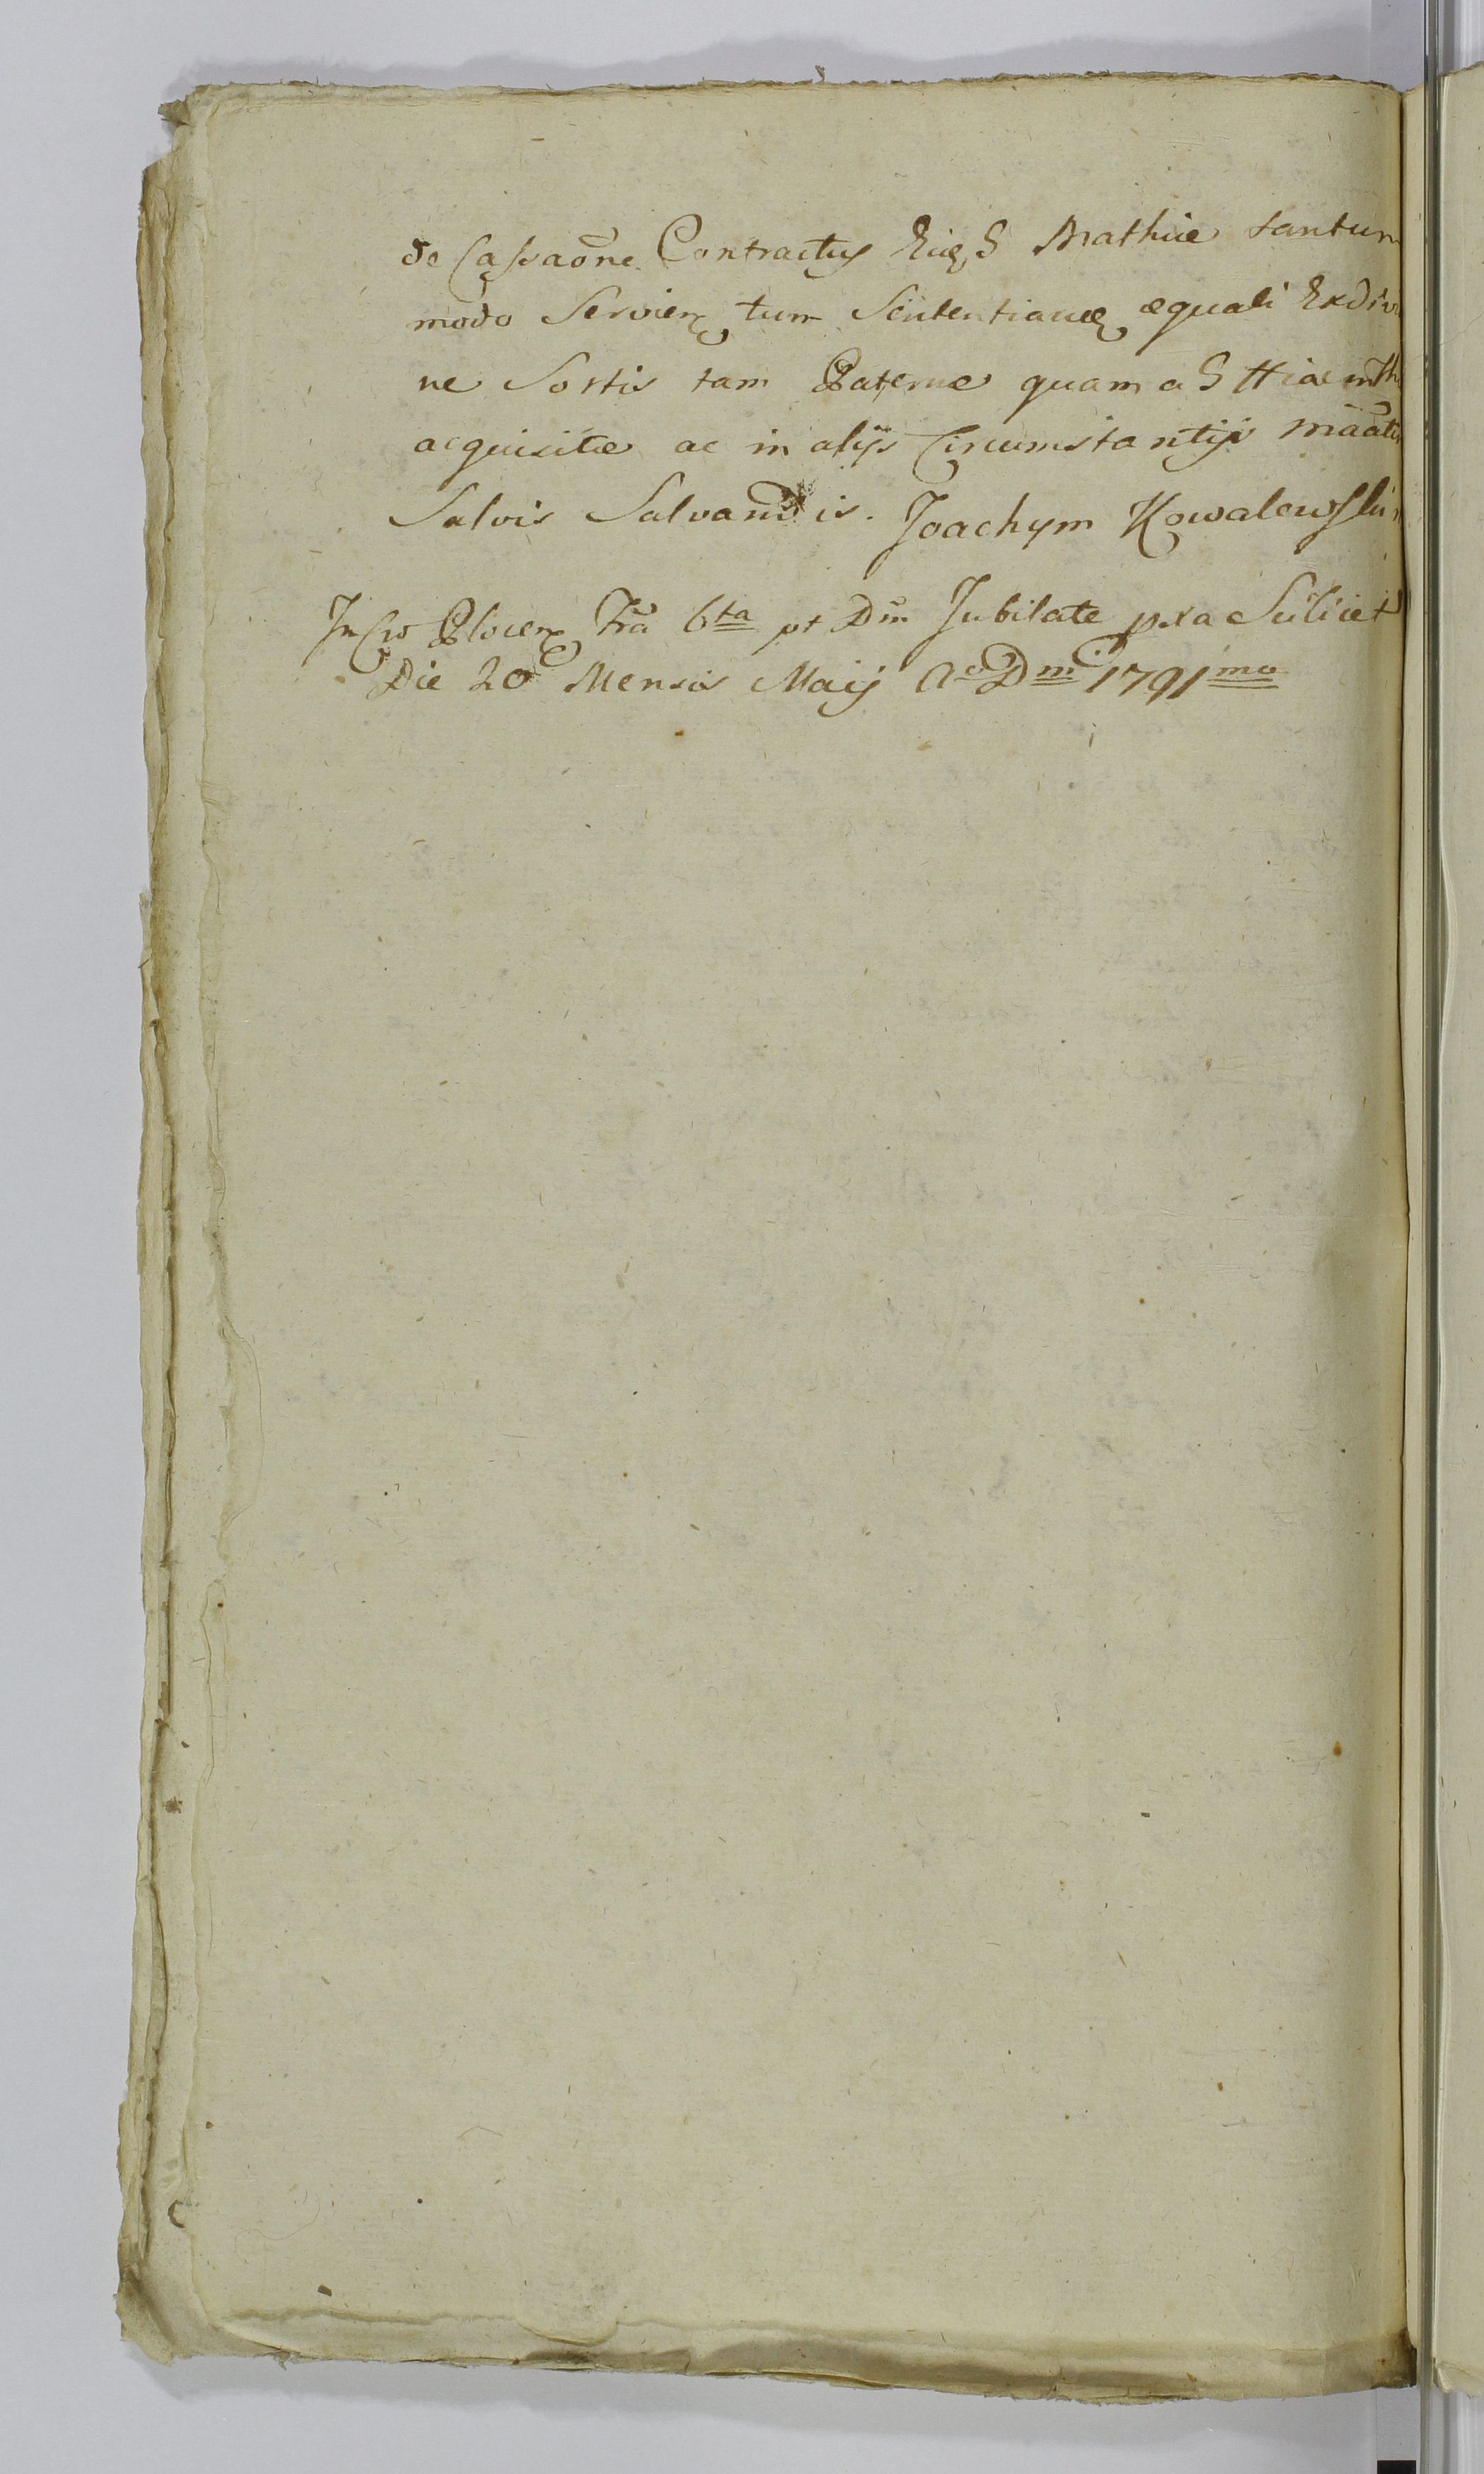 de Cassaõne Contractus Eiusd Mathiæ tantum
modo Servien tum Sententianda æquali Exdivi
ne Sortis tam Paternæ quam a S
acquisitæ ac in alijs Circumstantijs mãati
Salvis Salvandis. Joachym Kowalewski
In Cro Plocen Fria 6ta pt Dm̃ Jubilate pxa Scilicet
Die 20 Mensis Maij Ao Dni 1791mo